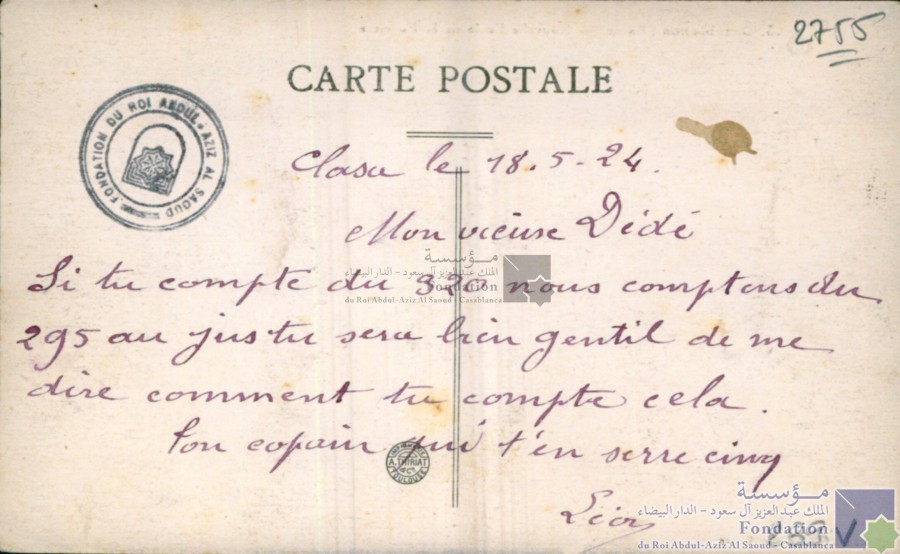 2755
CARTE POSTALE
FONDATION DU ROI ABDUL-AZIZ AL SAOUD
Casa le 18.5-24.
Mon vieuse Dédé
مؤسسة
الملك عبد العزيز آل سعود - الدار البيضاء
Fondation
du Roi Abdul-Aziz Al Saoud - Casablanca
Si tu compte du 320 nous comptons du
295 au jus tu sera bien gentil de me
dire comment tu compte cela.
Ton copain qui t'en serre cinq
A. THIRIAT
TOULOUSE
Léon
مؤسسة
الملك عبد العزيز آل سعود - الدار البيضاء
Fondation
du Roi Abdul-Aziz Al Saoud - Casablanca